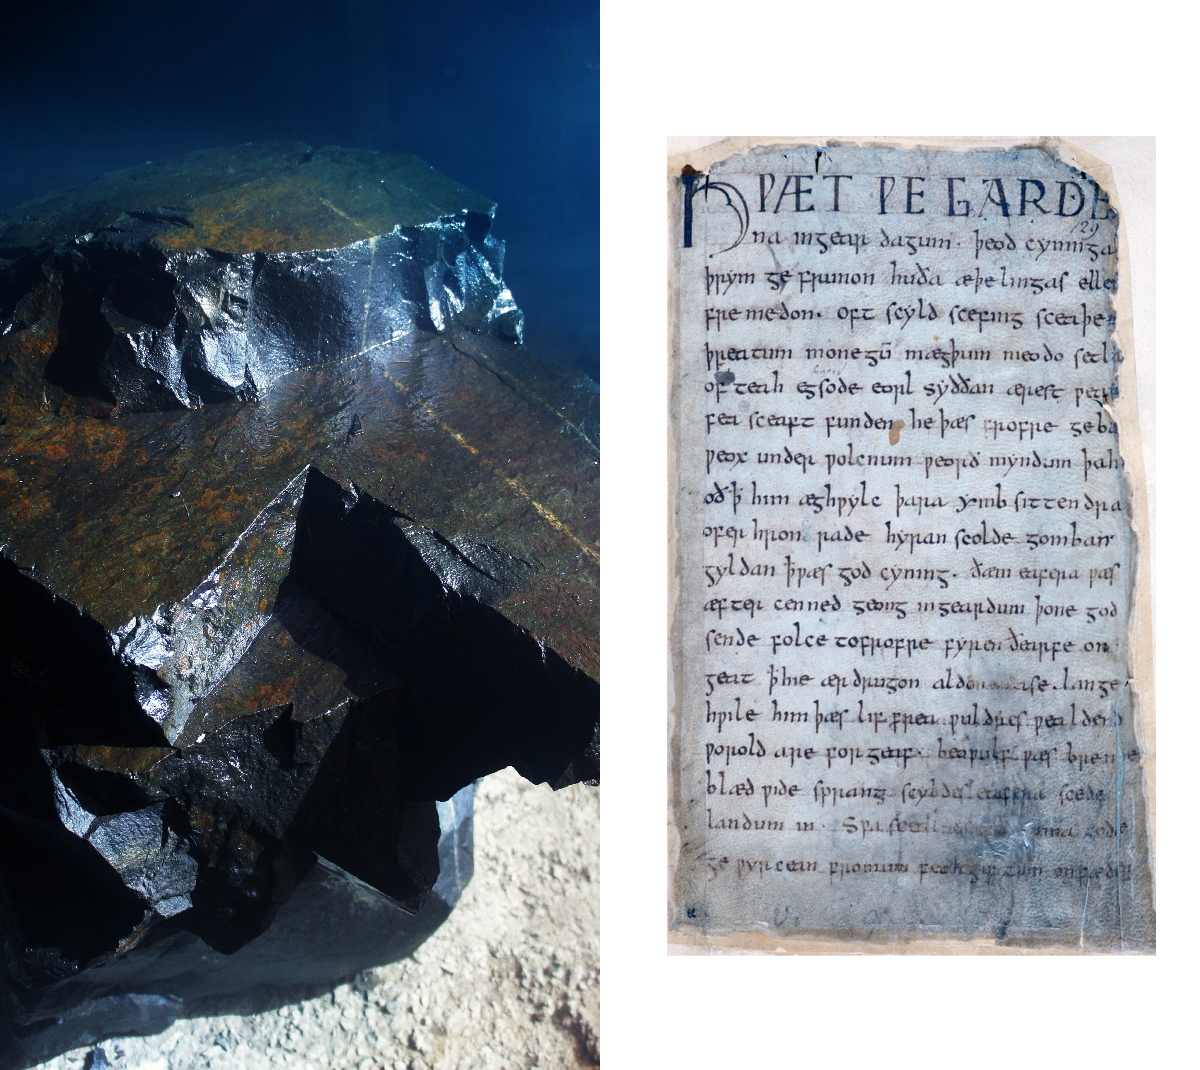 HǷÆT ǷE GARDE
na ingear dagum · þeod cyninga
þrym ge frunon huða æþelingas elle
fremedon. oft scyld scefing sceaþe
þreatum monegū mægþum meodo setla
of teah egsode eorl syððan ærest ƿear
fea sceaft funden he þæs frofre geba
ƿeox under ƿolcnum ƿeorð myndum þah
oð ꝥ him æghƿylc þara ymb sittendra
ofer hron rade hyran scolde gomban
gyldan ꝥ ƿæs god cyning. ðæm eafera ƿæs
æfter cenned geong in geardum þone god
sende folce tofrofre fyren ðearfe on
geat ꝥ hie ær drugon aldor ase. lange
hƿile him þæs lif frea ƿuldres ƿealdend
ƿorold are for geaf. beoƿulf ƿæs breme
blæd ƿide sprang scyldes eafera scede
landum in. Sƿa sceal guma gode
ge ƿyrcean fromum feoh giftum on fæder